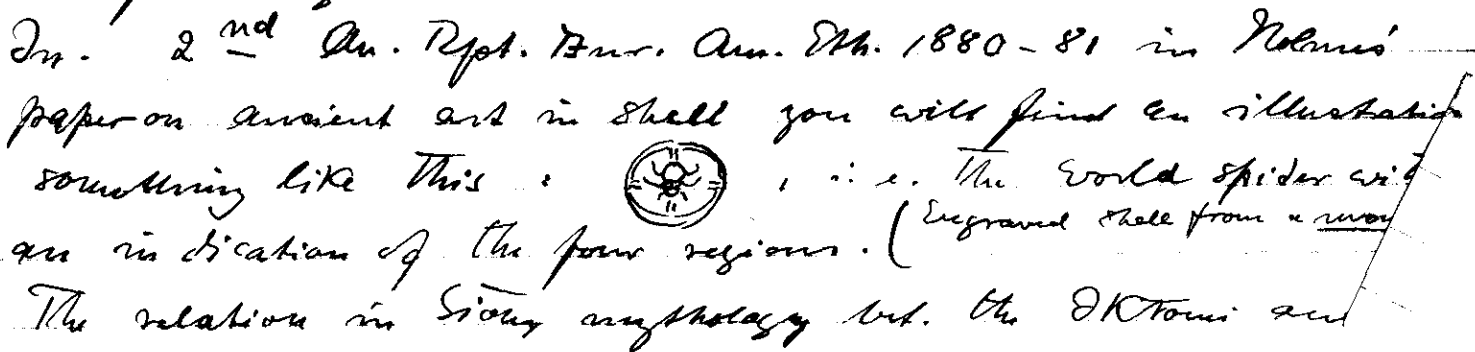 In. 2nd An. Rpt. Bur. Am. Eth. 1880-81 in Holmes'
paper on ancient art in shell you will find an illustration
something like this : , i.e. The world spider with
(Engraved shell from a
an indication of the four regions.
The relation in Sioux mythology bet. the IKtomi and